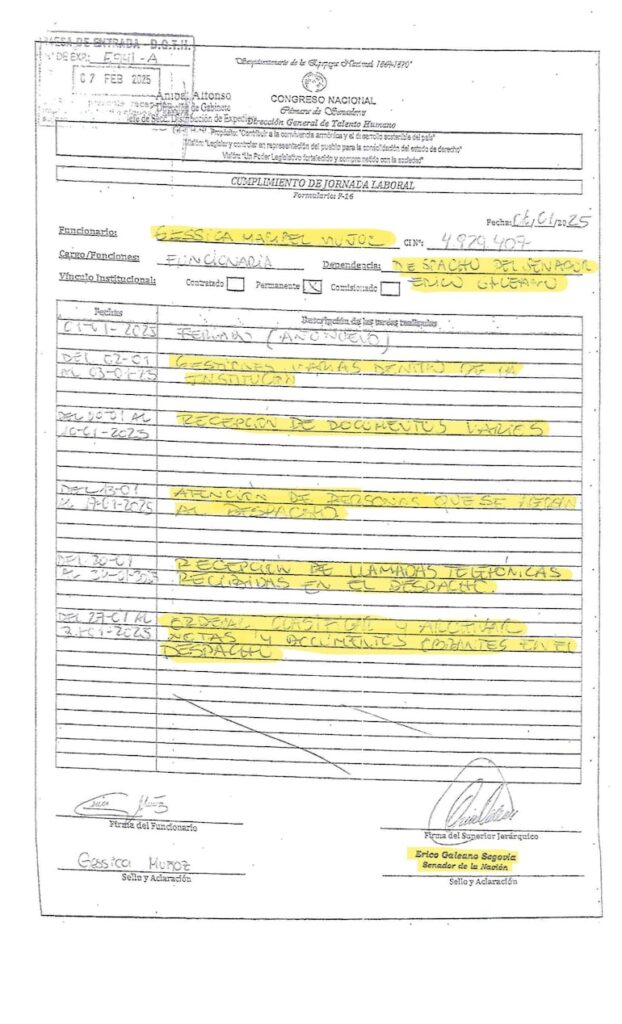 MESA DE ENTRADA - D.G.T.H.
Nº DE EXP: F941-A
07 FEB 2025
"Sesquicentenario de la Epopeya Nacional 1864-1870"
Anibal Alfonso
Dirección de Gabinete
Jefe de Secc. Distribución de Expedie
CONGRESO NACIONAL
Cámara de Senadores
Dirección General de Talento Humano
Propósito: "Contribuir a la convivencia armónica y el desarrollo sostenible del país"
Misión: "Legislar y controlar en representación del pueblo para la consolidación del estado de derecho"
Visión: "Un Poder Legislativo fortalecido y comprometido con la sociedad"
CUMPLIMIENTO DE JORNADA LABORAL
Formulario: F-16
Fecha: /01/2025
Funcionario: GESSICA MARIBEL MUÑOZ CI Nº: 4.929.407
Cargo/Funciones: FUNCIONARIA Dependencia: DESPACHO DEL SENADOR
Vínculo Institucional: Contratado Permanente X Comisionado ERICO GALEANO
Fechas Descripción de las tareas realizadas
01-01-2025 FERIADO (AÑO NUEVO)
DEL 02-01 GESTIONES VARIAS DENTRO DE LA
AL 03-01-25 INSTITUCION
DEL 06-01 AL RECEPCIÓN DE DOCUMENTOS VARIES
10-01-2025
DEL 13-01 ATENCIÓN DE PERSONAS QUE SE LLEGAN
AL 17-01-2025 AL DESPACHO
DEL 20-01 RECEPCIÓN DE LLAMADAS TELEFÓNICAS
AL 24-01-2025 RECIBIDAS EN EL DESPACHO
DEL 27-01 AL ORDENAR CLASIFICAR Y ARCHIVAR
31-01-2025 NOTAS Y DOCUMENTOS OBRANTES EN EL
DESPACHO
Firma del Funcionario Firma del Superior Jerárquico
Gessica Muñoz Erico Galeano Segovia
Senador de la Nación
Sello y Aclaración Sello y Aclaración